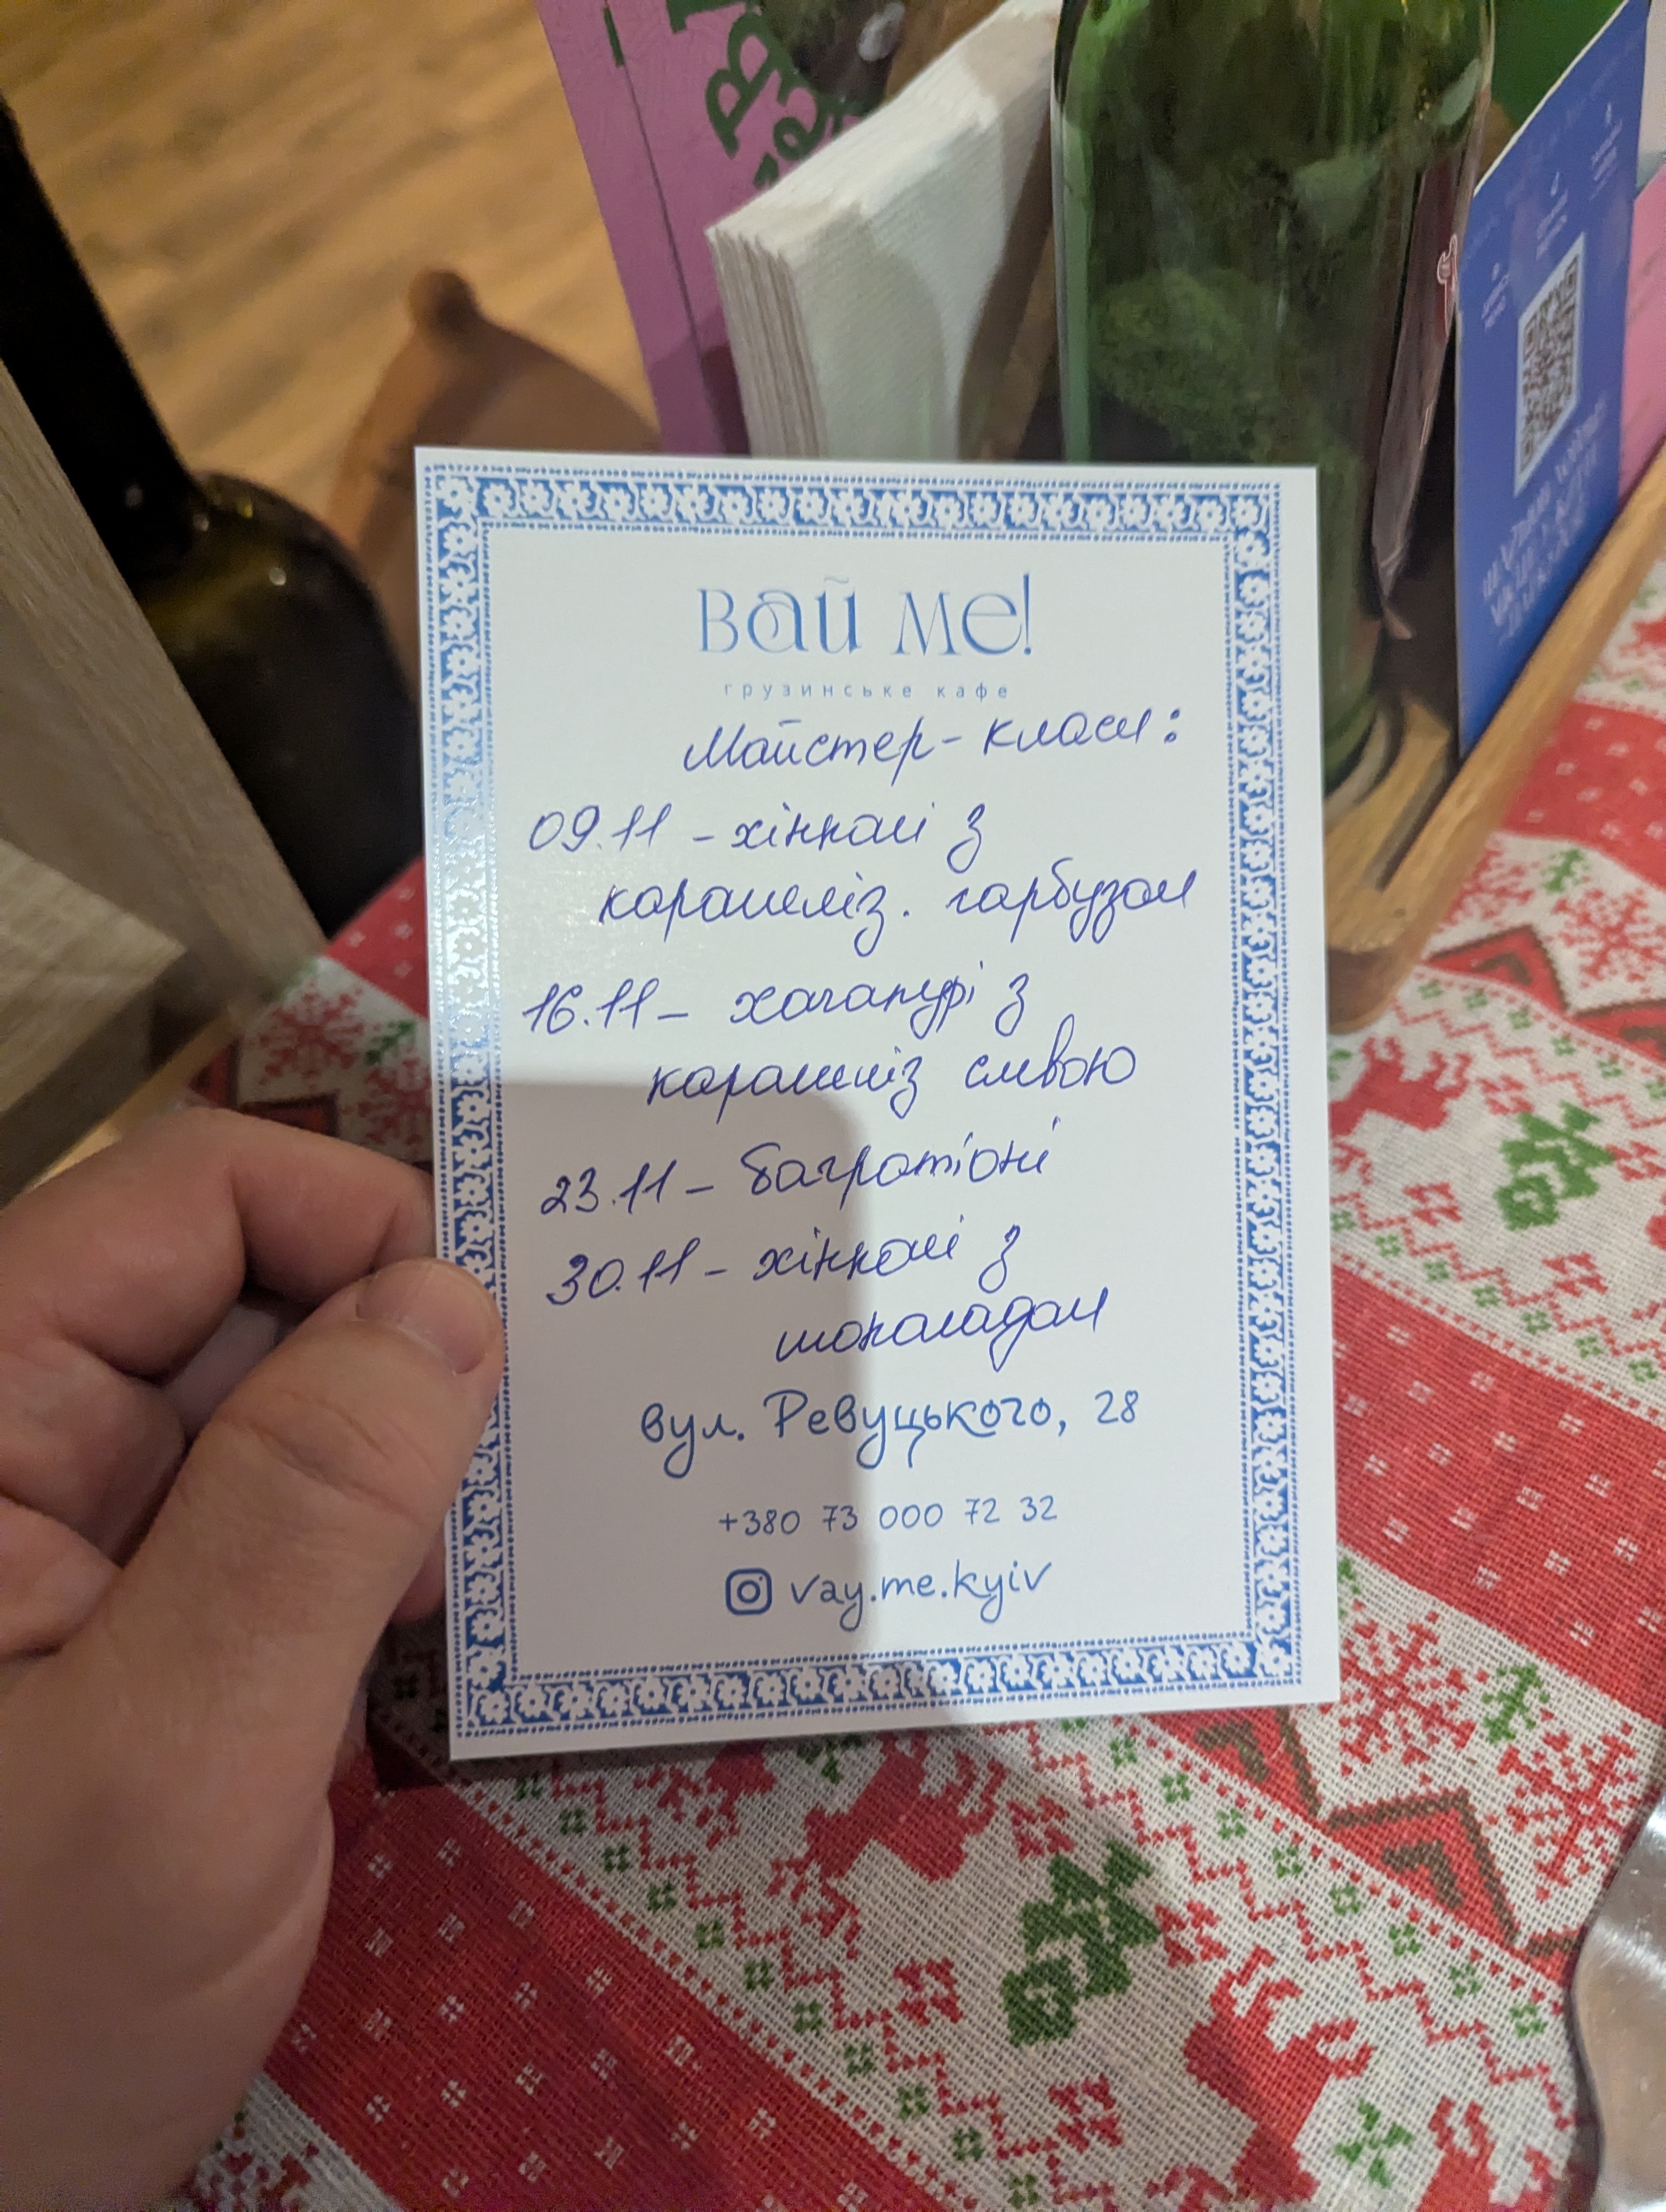 вай ме!
грузинське кафе
Майстер-класи:
09.11 - хінкалі з
карамеліз. гарбузом
16.11 - хачапурі з
карамеліз сливою
23.11 - багратіоні
30.11 - хінкалі з
шоколадом
вул. Ревуцького, 28
+380 73 000 72 32
vay.me.kyiv